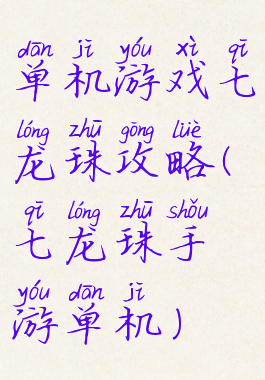 dān jī yóu xì qī
单机游戏七
lóng zhū gōng lüè
龙珠攻略(
qī lóng zhū shǒu
七龙珠手
yóu dān jī
游单机)